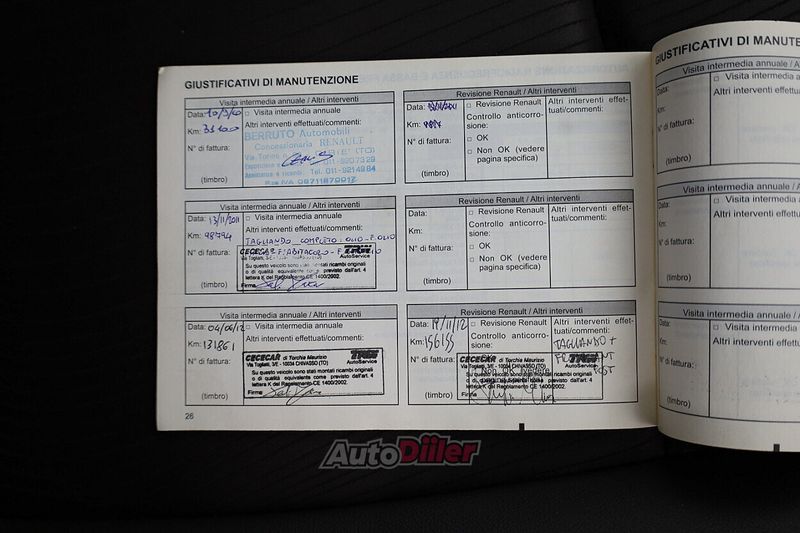 GIUSTIFICATIVI DI MANUTENZIONE
Visita intermedia annuale / Altri interventi
Data: 10/3/10 □ Visita intermedia annuale
Km: 33100 Altri interventi effettuati/commenti:
BERRUTO Automobili
Concessionaria RENAULT
N° di fattura:
Via Torino (TO)
011-9207329
Assistenza e ricambi: Tel. 011-9214984
(timbro)
Revisione Renault / Altri interventi
Data: □ Revisione Renault
Altri interventi effet-
tuati/commenti:
Km: Controllo anticorro-
sione:
N° di fattura: □ OK
□ Non OK (vedere
pagina specifica)
(timbro)
Visita intermedia annuale / Altri interventi
Data: 13/11/2011 □ Visita intermedia annuale
Km: 98794 Altri interventi effettuati/commenti:
N° di fattura: TAGLIANDO COMPLETO: OLIO - F. OLIO
CECECAR TRW
AutoService
Su questo veicolo sono stati montati ricambi originali
o di qualità equivalente come previsto dall'art. 4
lettera K del Regolamento CE 1400/2002.
(timbro) Firma
Revisione Renault / Altri interventi
Data: □ Revisione Renault
Altri interventi effet-
tuati/commenti:
Km: Controllo anticorro-
sione:
N° di fattura: □ OK
□ Non OK (vedere
pagina specifica)
(timbro)
Visita intermedia annuale / Altri interventi
Data: 04/06/12 □ Visita intermedia annuale
Km: 131861 Altri interventi effettuati/commenti:
N° di fattura:
CECECAR di Torchia Maurizio TRW
Via Togliatti, 3/E - 10034 CHIVASSO (TO) AutoService
Su questo veicolo sono stati montati ricambi originali
o di qualità equivalente come previsto dall'art. 4
lettera K del Regolamento CE 1400/2002.
(timbro) Firma
Revisione Renault / Altri interventi
Data: 19/11/12 □ Revisione Renault
Altri interventi effet-
tuati/commenti:
Km: 156155 Controllo anticorro-
sione:
TAGLIANDO +
N° di fattura:
CECECAR di Torchia Maurizio TRW
Via Togliatti, 3/E - 10034 CHIVASSO (TO) AutoService
Su questo veicolo sono stati montati ricambi originali
o di qualità equivalente come previsto dall'art. 4
lettera K del Regolamento CE 1400/2002.
(timbro)
26
GIUSTIFICATIVI DI MANUTEN
Visita intermedia annuale / Altri
Data: □ Visita intermedia
Km: Altri interventi effet
N° di fattura:
(timbro)
Visita intermedia annuale / Altri
Data: □ Visita intermedia
Km: Altri interventi effet
N° di fattura:
(timbro)
Visita intermedia annuale / Altri
Data: □ Visita intermedia
Km: Altri interventi effet
N° di fattura:
(timbro)
AutoDiller